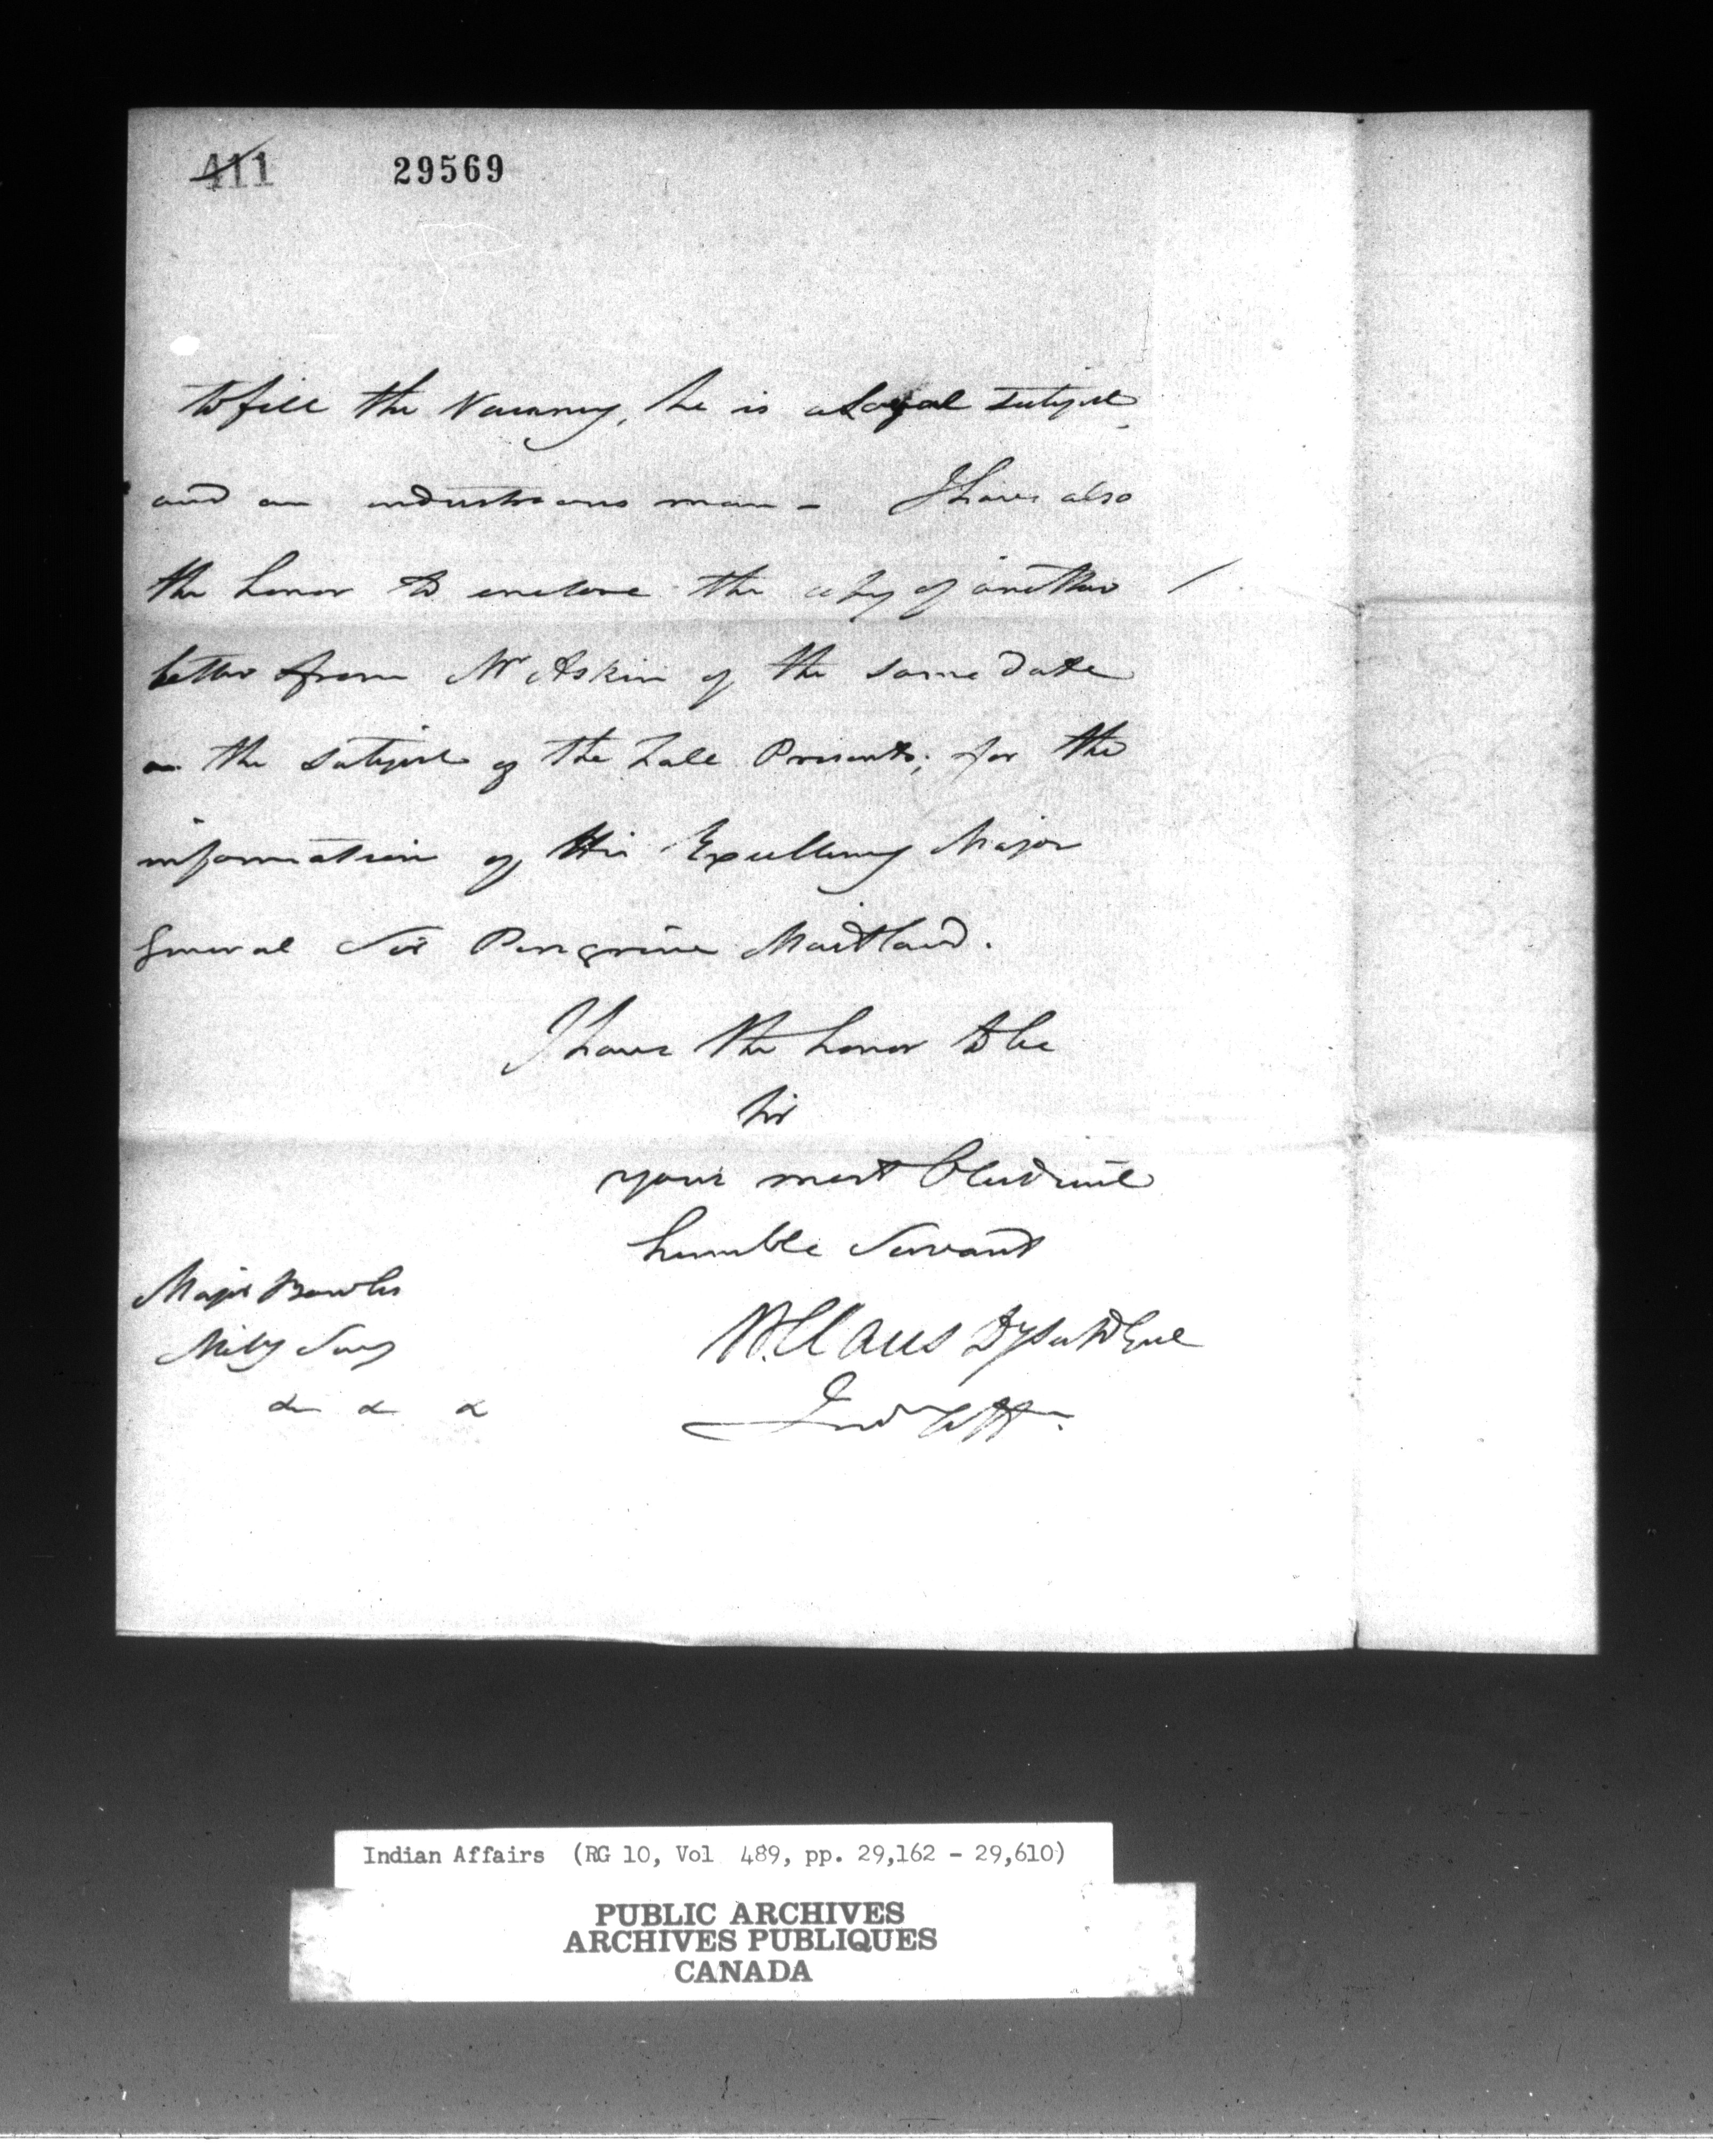 411 29569
to fill the Vacancy, he is a Loyal subject
and an industrious man - I have also
the honor to enclose the copy of another /
letter from Mr Askin of the same date
on the subject of the Presents; for the
information of His Excellency Major
General Sir Peregrine Maitland.
I have the honor to be
Sir
your most Obedient
humble Servant
W. Claus Dy Sup Genl
Ind Aff.
Major Bowles
Mility Secy
& & &
Indian Affairs (RG 10, Vol 489, pp. 29,162 - 29,610)
PUBLIC ARCHIVES
ARCHIVES PUBLIQUES
CANADA